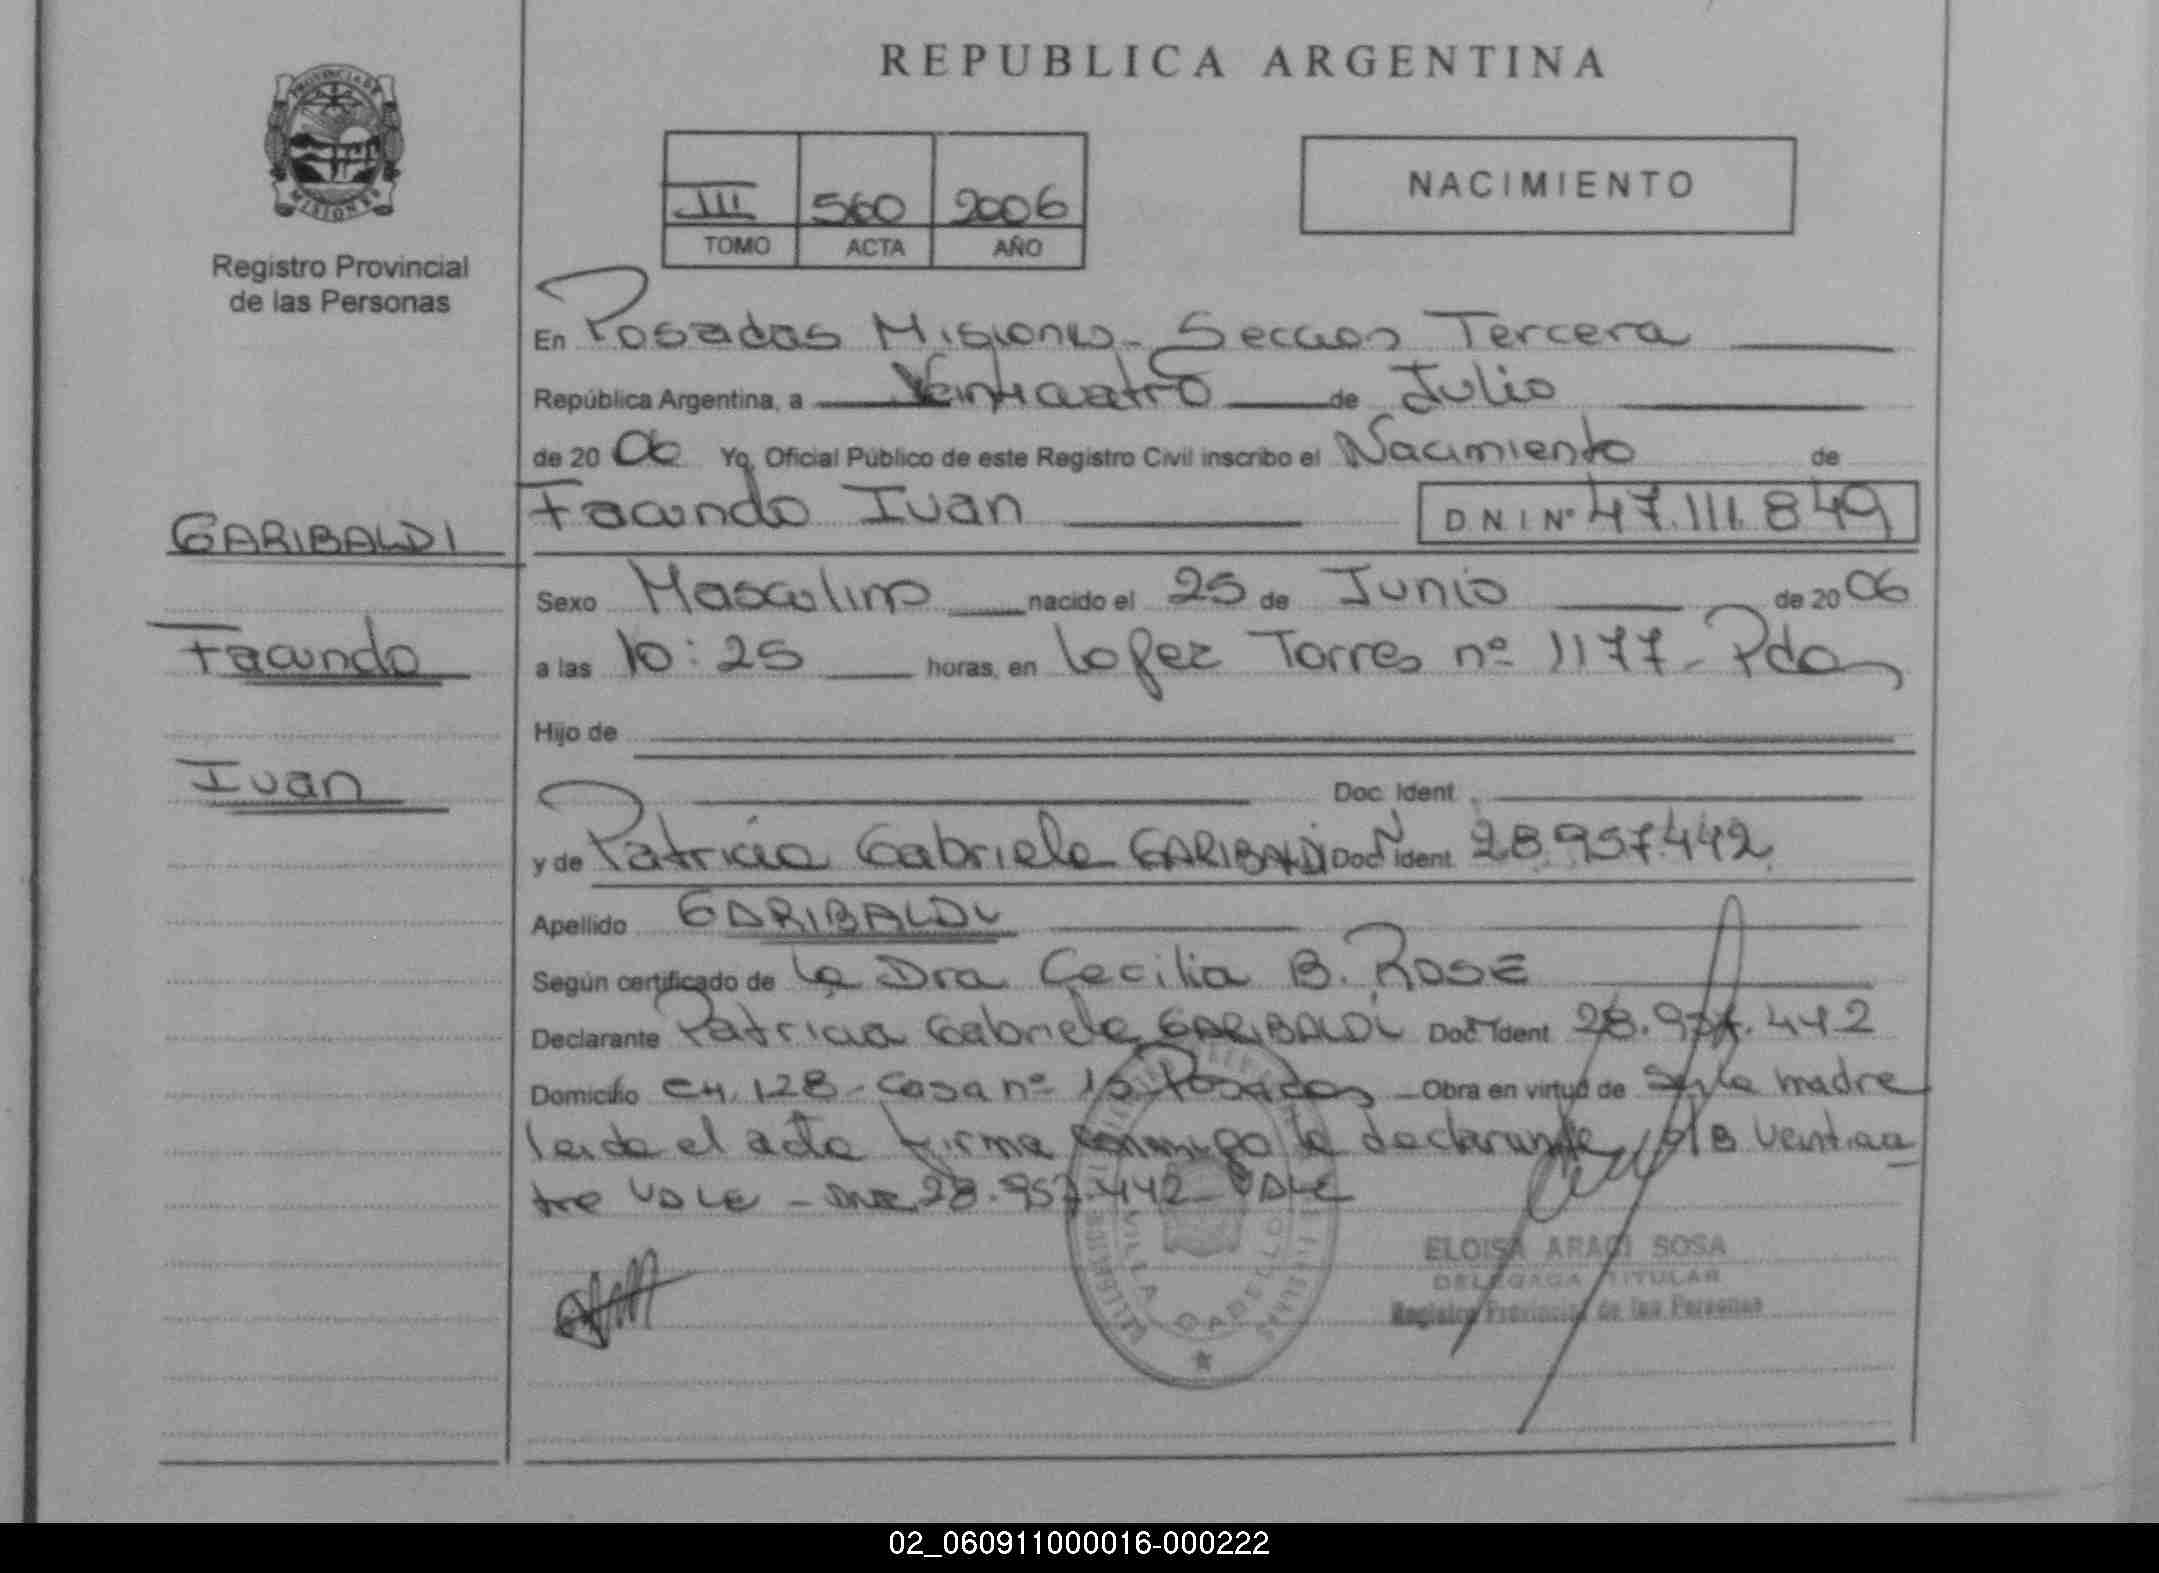 REPUBLICA ARGENTINA
PROVINCIA DE MISIONES
Registro Provincial
de las Personas
III 560 2006
TOMO ACTA AÑO
NACIMIENTO
En Posadas Misiones - Seccion Tercera
República Argentina, a Veinticuatro de Julio
de 20 06 Yo, Oficial Público de este Registro Civil inscribo el Nacimiento de
Facundo Ivan DNI Nº 47.111.849
GARIBALDI
Facundo
Ivan
Sexo Masculino nacido el 25 de Junio de 20 06
a las 10:25 horas, en Lopez Torres nº 1177 - Pdas
Hijo de
Doc. Ident.
y de Patricia Gabriela GARIBALDI Doc. Ident. 28.957.442
Apellido GARIBALDI
Según certificado de la Dra Cecilia B. ROSE
Declarante Patricia Gabriela GARIBALDI Doc. Ident. 28.957.442
Domicilio CH. 128 - Casa nº 15 Posadas Obra en virtud de ser la madre
leida el acta firma conmigo la declarante, Veinticua
tro VALE - 28.957.442 VALE
VILLA CABELLO
ELOISA ARACI SOSA
DELEGADA TITULAR
Registro Provincial de las Personas
02_060911000016-000222